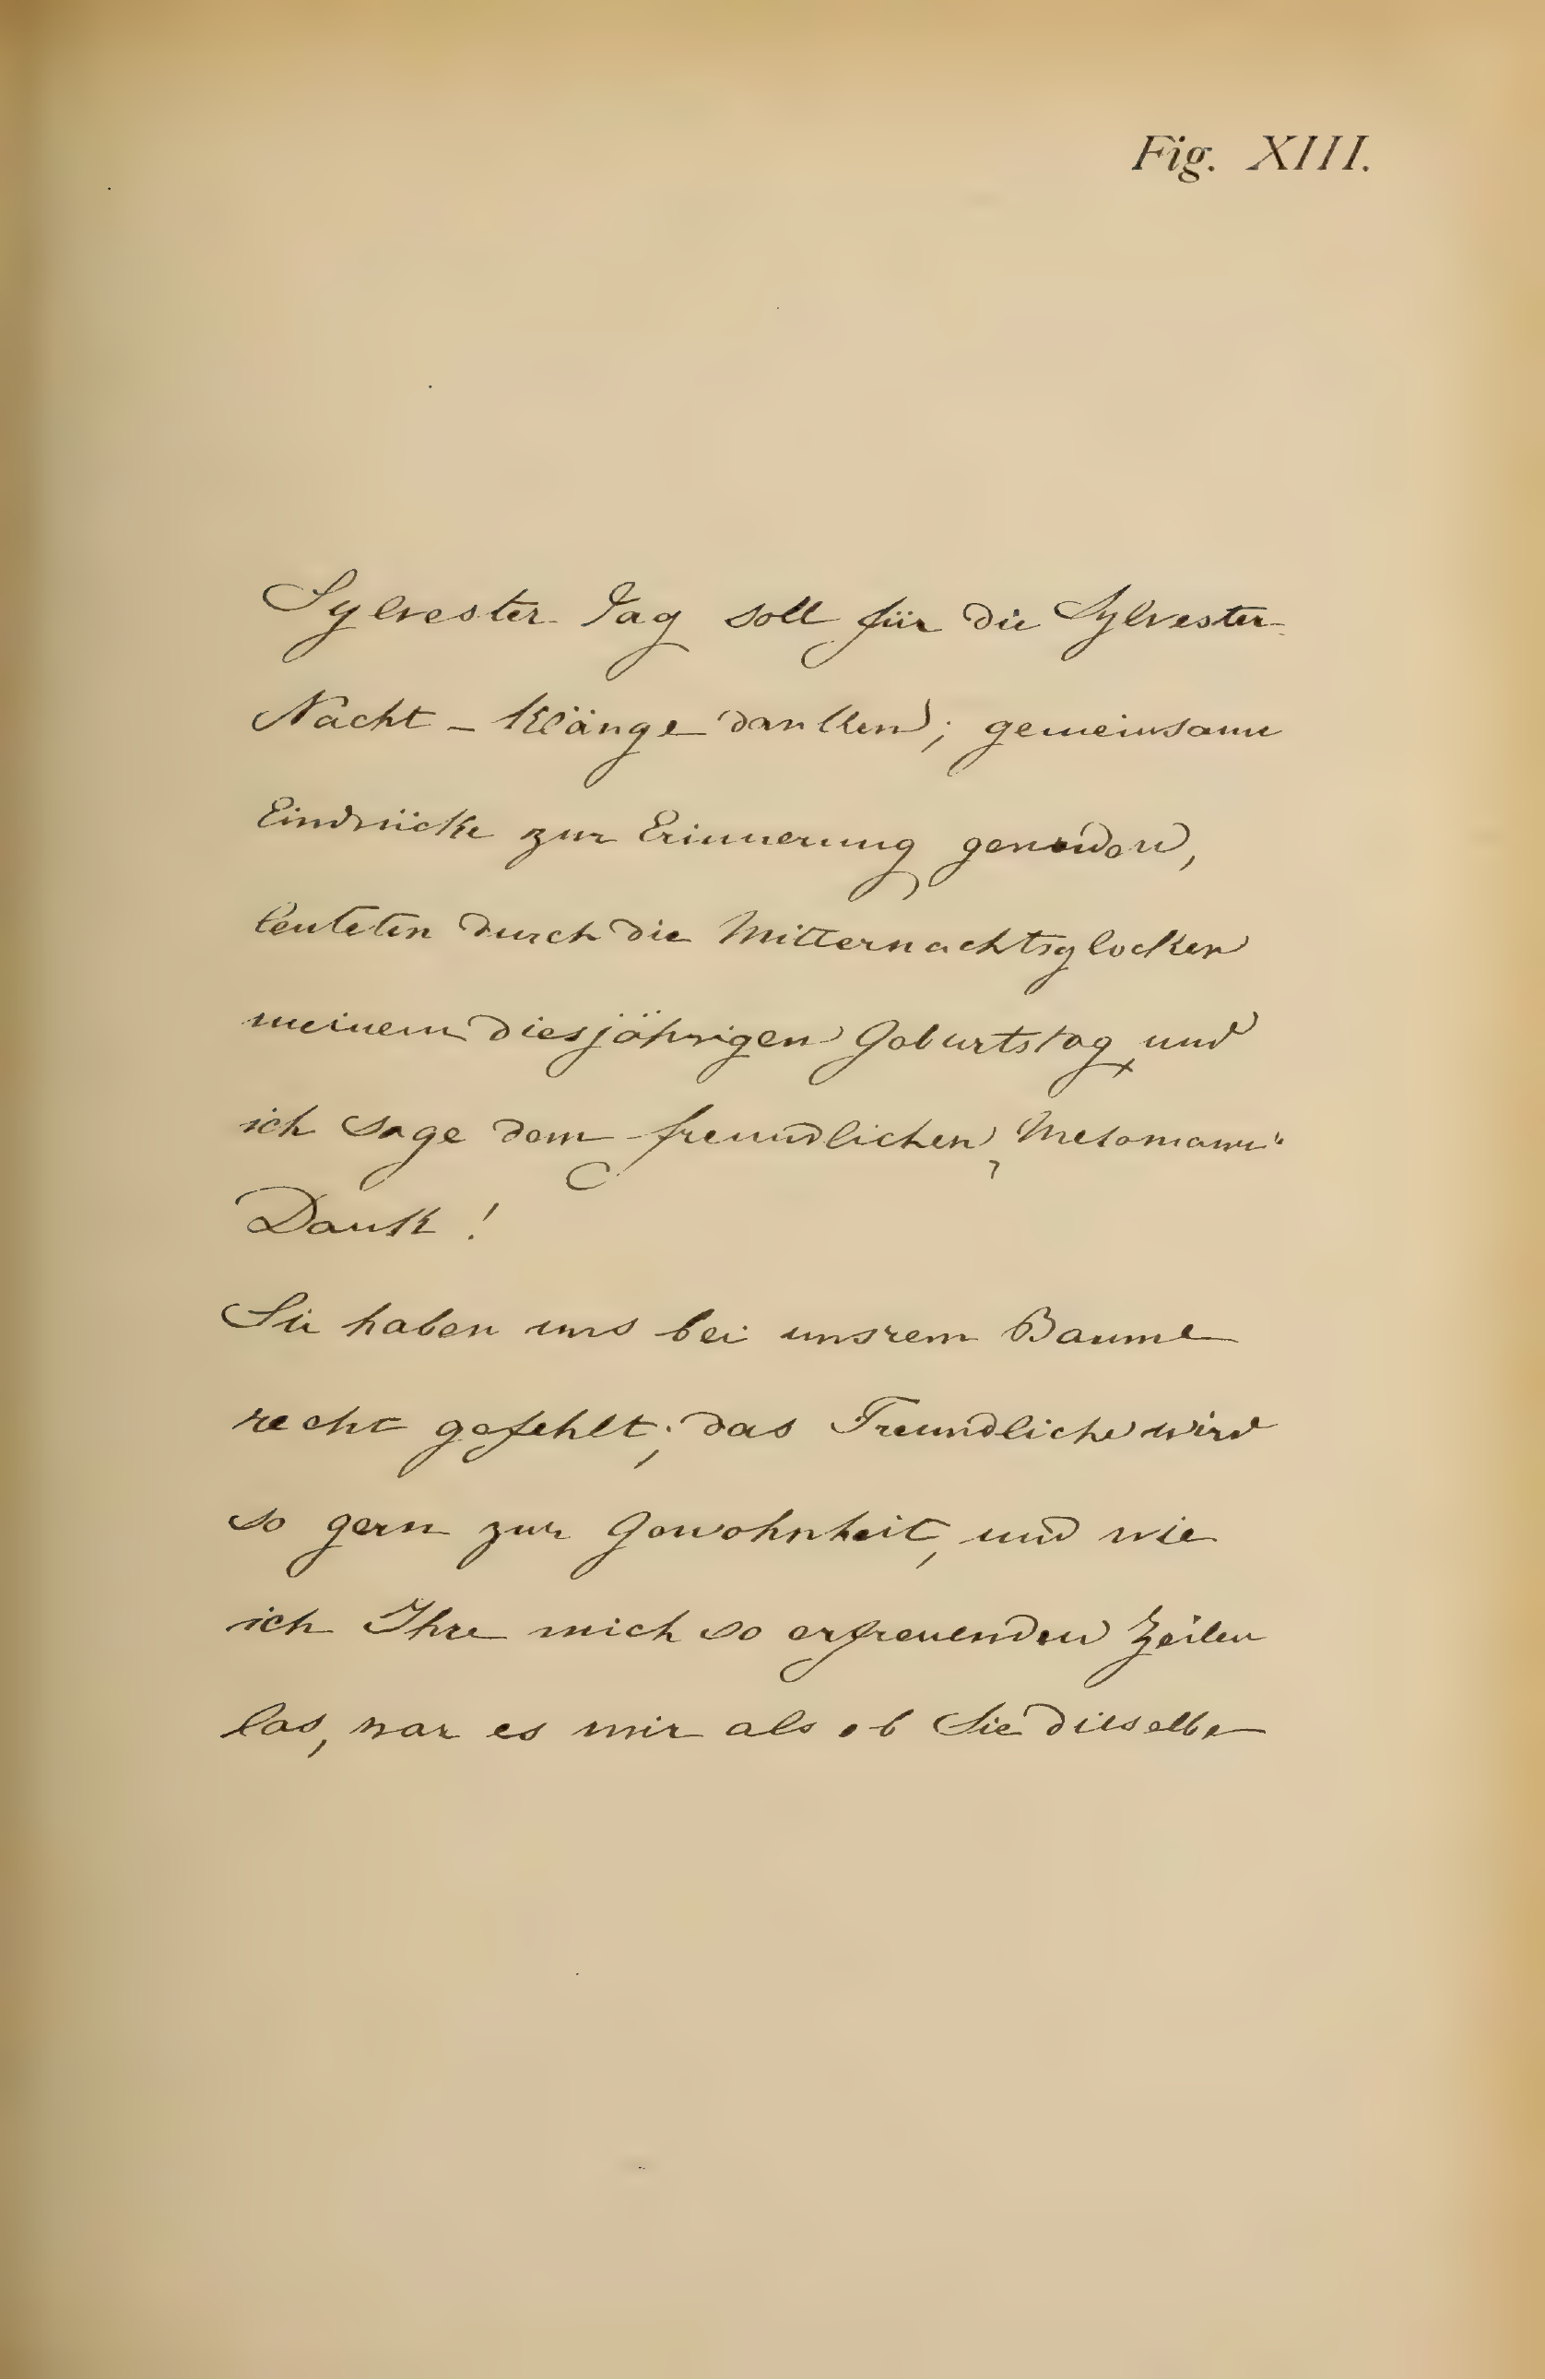 Fig. XIII.
Sylvester-Tag soll für die Sylvester-
Nacht-Klänge danken; gemeinsame
Eindrücke zur Erinnerung geworden,
leuteten durch die Mitternachtsglocken
meinem diesjährigen Geburtstag, und
ich sage dem freundlichen „Melomann“
Dank!
Sie haben uns bei unsrem Baume
recht gefehlt; das Freundliche wird
so gern zur Gewohnheit, und wie
ich Ihre mich so erfreuenden Zeilen
las, war es mir als ob Sie dieselbe